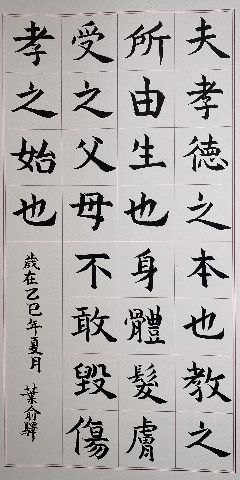 夫孝德之本也教之
所由生也身體髮膚
受之父母不敢毀傷
孝之始也
歲在乙巳年夏月
葉俞驛